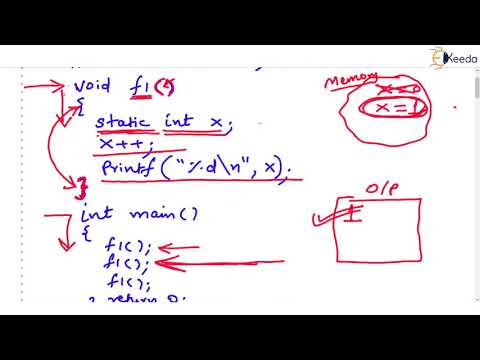 Keeda
void f1()
{
static int x;
x++;
printf("%d\n", x);
}
int main()
{
f1();
f1();
f1();
return 0;
Memory
x=0
x=1
O/P
1